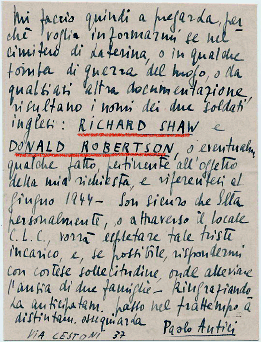 Mi faccio quindi a pregarla, per
chè voglia informarmi se nel
cimitero di Laterina, o in qualche
tomba di guerra del luogo, o da
qualsiasi altra documentazione
risultano i nomi dei due soldati
inglesi: RICHARD SHAW e
DONALD ROBERTSON, o eventual
qualche fatto, pertinente all'oggetto
della mia richiesta, e riferentesi al
giugno 1944 - Son sicuro che Ella
personalmente, o attraverso il locale
C.L.C., vorrà espletare tale triste
incarico, e, se possibile, rispondermi
con cortese sollecitudine, onde alleviare
l'ansia di due famiglie - Ringraziando
La anticipatam. passo nel frattempo a
distintam. ossequiarla
Paolo Antici
VIA CESTONI 37